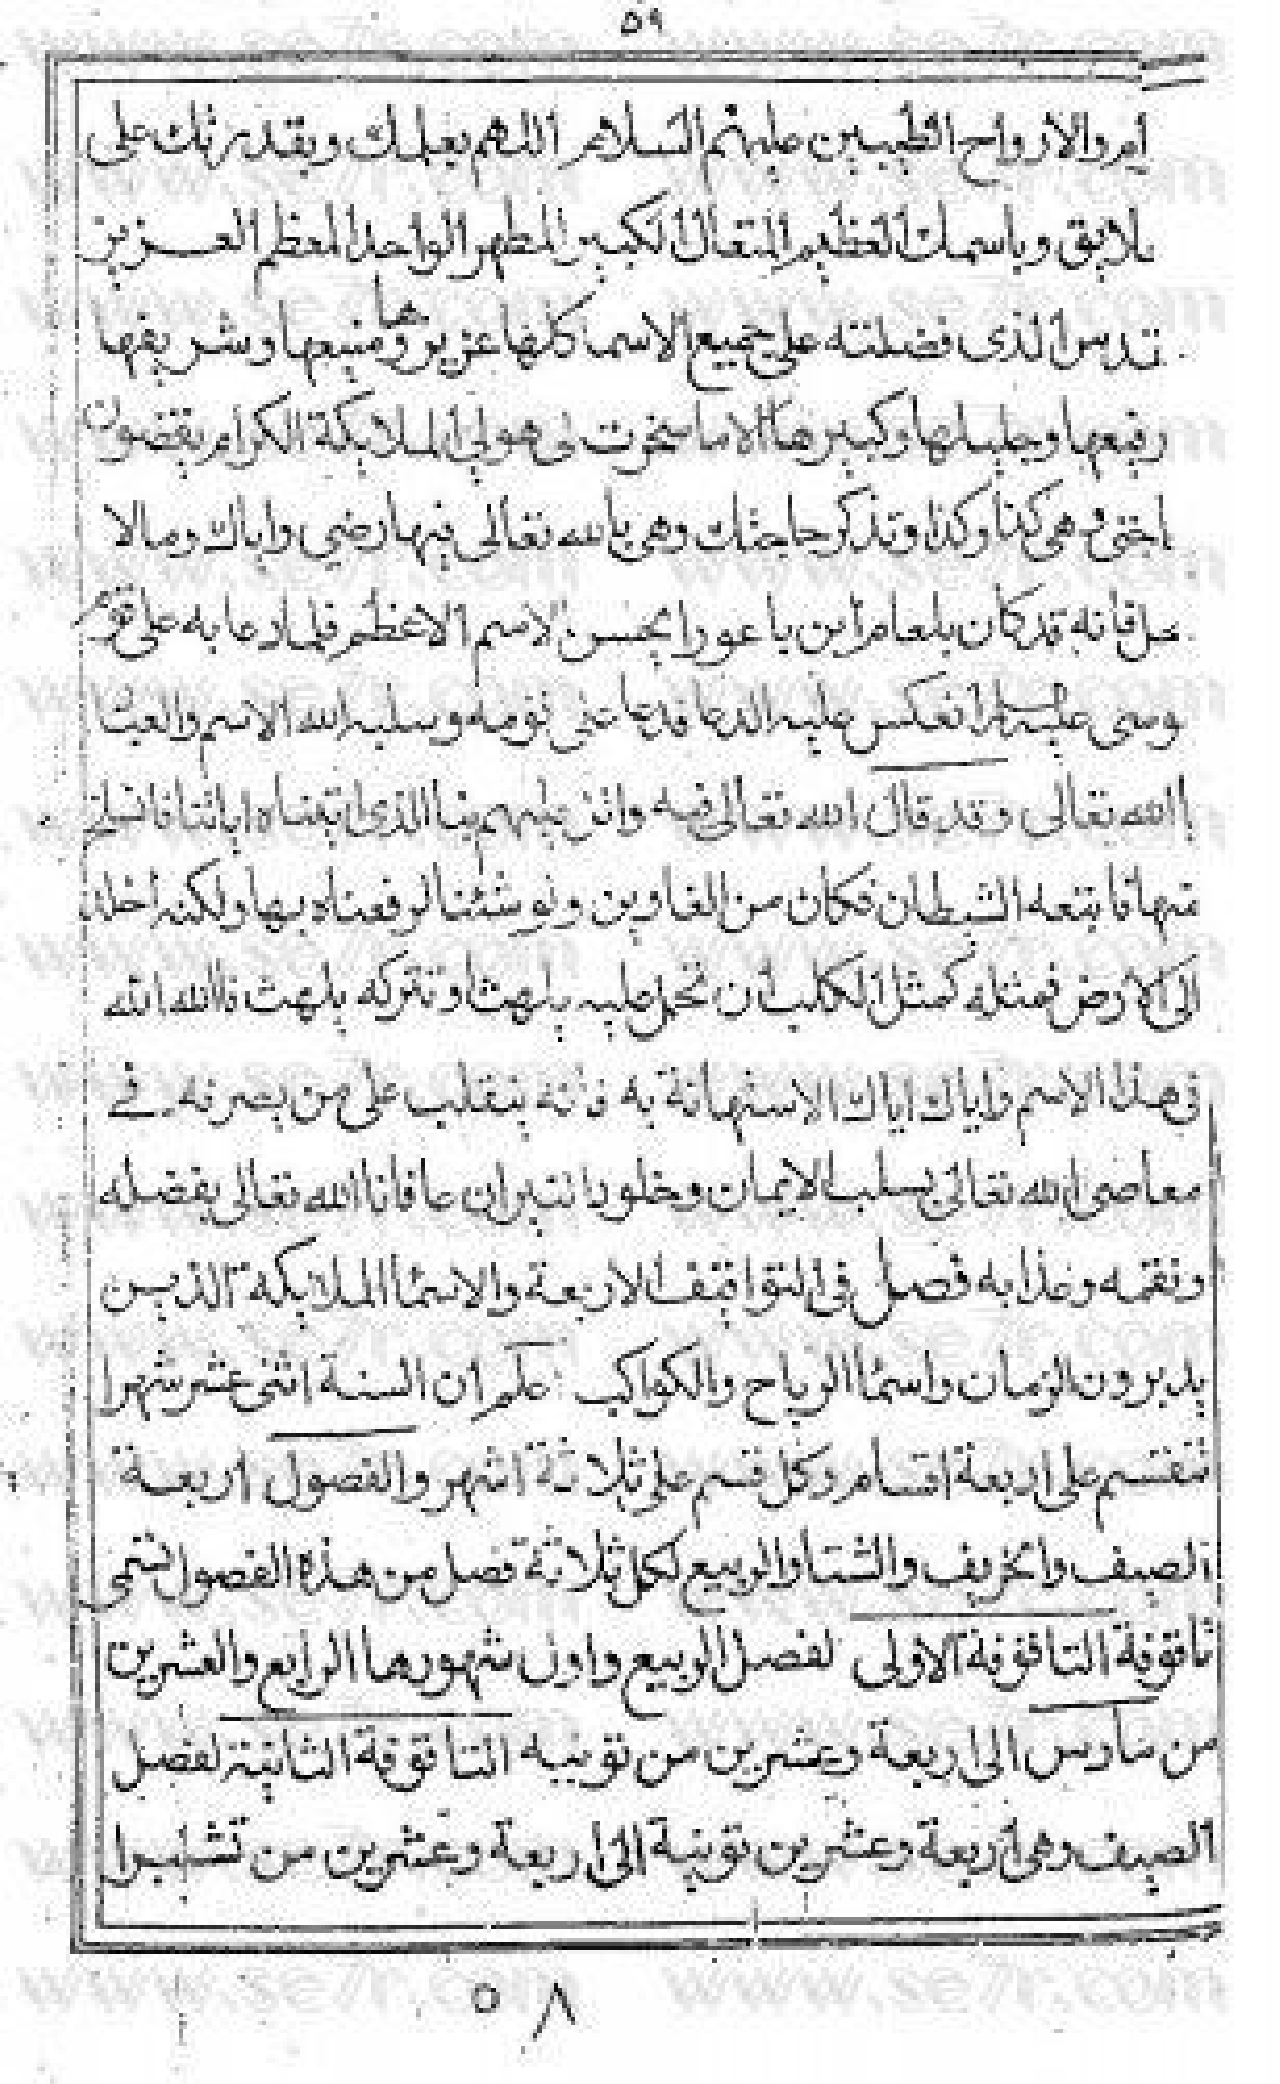 ٥٩
والارواح الطيبين عليهم السلام اللهم بعلمك وبقدرتك على
وباسمك العظيم المتعال الكبير المطهر الواحد المعظم العزيز
الذى فضلته على جميع الاسما كلها عزيزها ومنيعها وشريفها
رفيعها وجليلها وكبيرها الا ما سخرت لى هولى الملايكة الكرام يقضون
وهى كذا وكذا وتذكر حاجتك وهى يالله تعالى فيها رضى واياك ومالا
فانه قد كان بلعام ابن باعورا يحسن الاسم الاعظم فلما دعا به على قوم
موسى عليه السلام انعكس عليه الدعا فدعا على قومه وسلبه الله الاسم والعياذ
بالله تعالى وقد قال الله تعالى فيه واتل عليهم نبا الذى اتيناه اياتنا فانسلخ
منها فاتبعه الشيطان فكان من الغاوين ولو شئنا لرفعناه بها ولكنه اخلد
الى الارض فمثله كمثل الكلب ان تحمل عليه يلهث او تتركه يلهث فالله الله
فى هذا الاسم واياك اياك الاستهانة به فانه ينقلب على من يصرفه فى
معاصى الله تعالى بسلب الايمان وخلود النيران عافانا الله تعالى بفضله
ونقمه وعذابه فصل فى التواقيف الاربعة والاسما الملايكة الذين
يدبرون الزمان واسما الرياح والكواكب اعلم ان السنة اثنى عشر شهرا
فتقتسم على اربعة اقسام وكل قسم على ثلاثة اشهر والفصول اربعة
الصيف والخريف والشتا والربيع لكل ثلاثة فصل من هذه الفصول تسمى
تاقوفة التاقوفة الاولى لفصل الربيع واول شهورها الرابع والعشرين
من مارس الى اربعة وعشرين من يونيه التاقوفة الثانية لفصل
الصيف وهى اربعة وعشرين يونية الى اربعة وعشرين من
٥٨
www.se7r.com